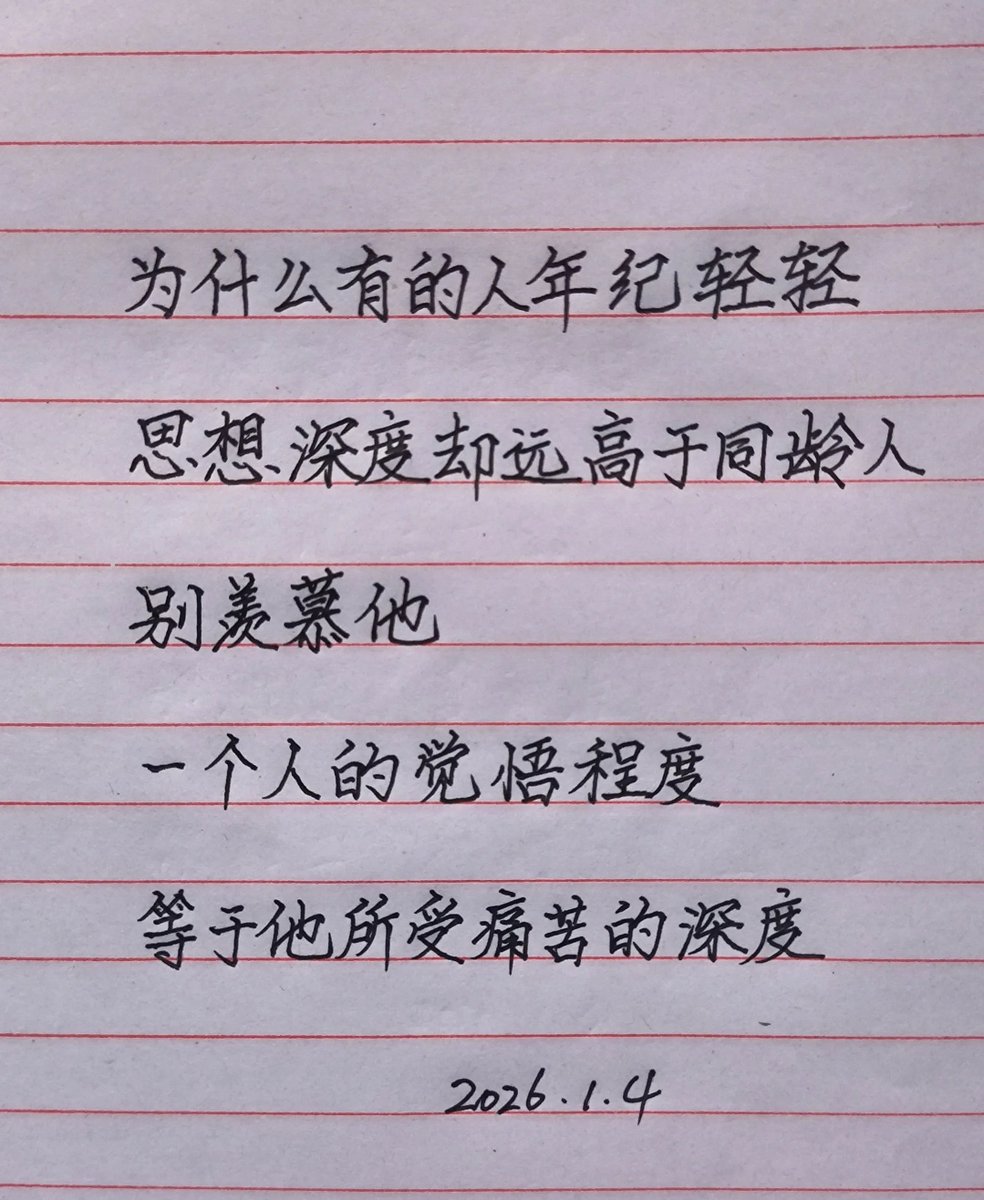 为什么有的人年纪轻轻
思想深度却远高于同龄人
别羡慕他
一个人的觉悟程度
等于他所受痛苦的深度
2026.1.4